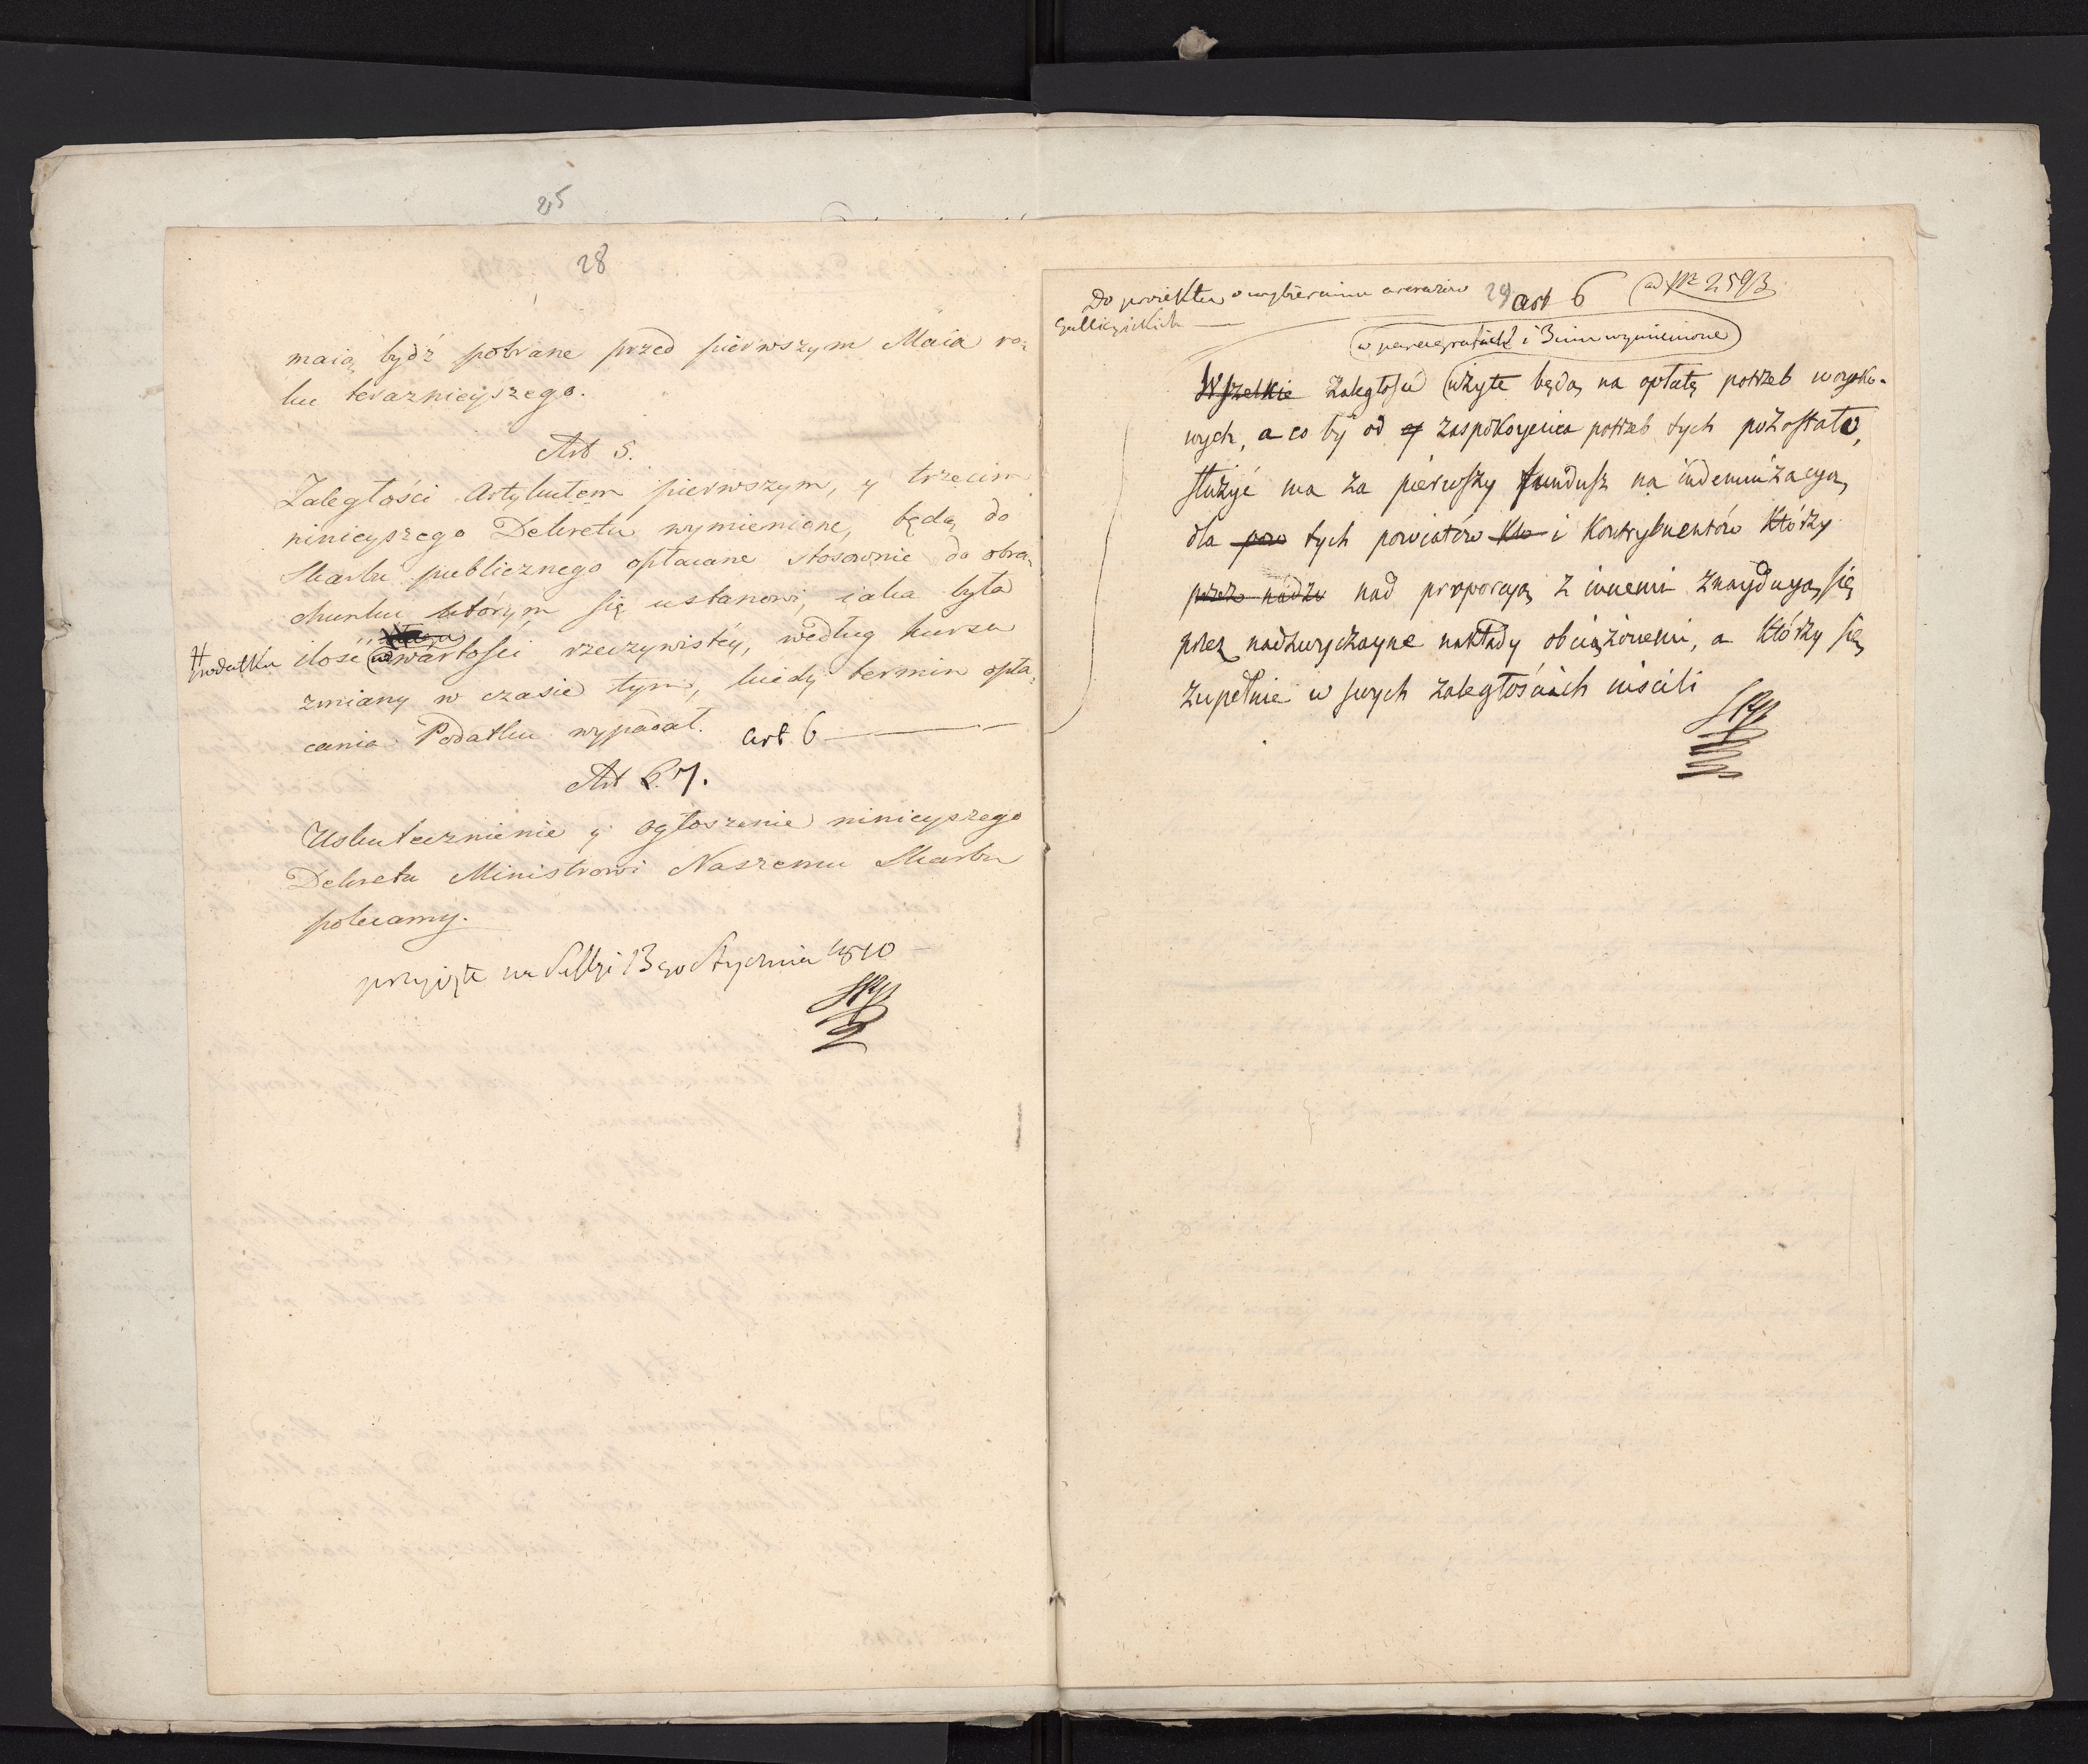 25
28
maią bydź pobrane przed pierwszym Maia ro-
ku teraznieyszego.
Art 5.
Zaległości Artykułem pierwszym, y trzecim
ninieyszego Dekretu wymienione, będą do
Skarbu publicznego opłacane stosownie do obra-
chunku którym się ustanowi, iaka była
podatku ilość w wartości rzeczywistéy, według kursu
zmiany w czasie tym, kiedy termin opła-
cania Podatku wypadał. art. 6
Art 6. 7.
Uskutecznienie y ogłoszenie ninieyszego
Dekretu Ministrowi Naszemu Skarbu
polecamy.
przyięte na Sessyi 13go Stycznia 1810
Do proiektu o wybieraniu arerazów 29 art 6 ad Nr 2593
Gallicyiskich
w paragrafach i 3cim wymienione
Wszelkie Zaległości użyte będą na opłatę potrzeb woysko-
wych, a co by od zaspokoyenia potrzeb tych pozostało,
służyć ma za pierwszy fundusz na indemnizacyą
dla pow tych powiatów kto i Kontrybuentów którzy
przez nadzw nad proporcyą z innemi znayduyą się
przez nadzwyczayne nakłady obciążonemi, a którzy się
zupełnie w swych zaległościach uiścili